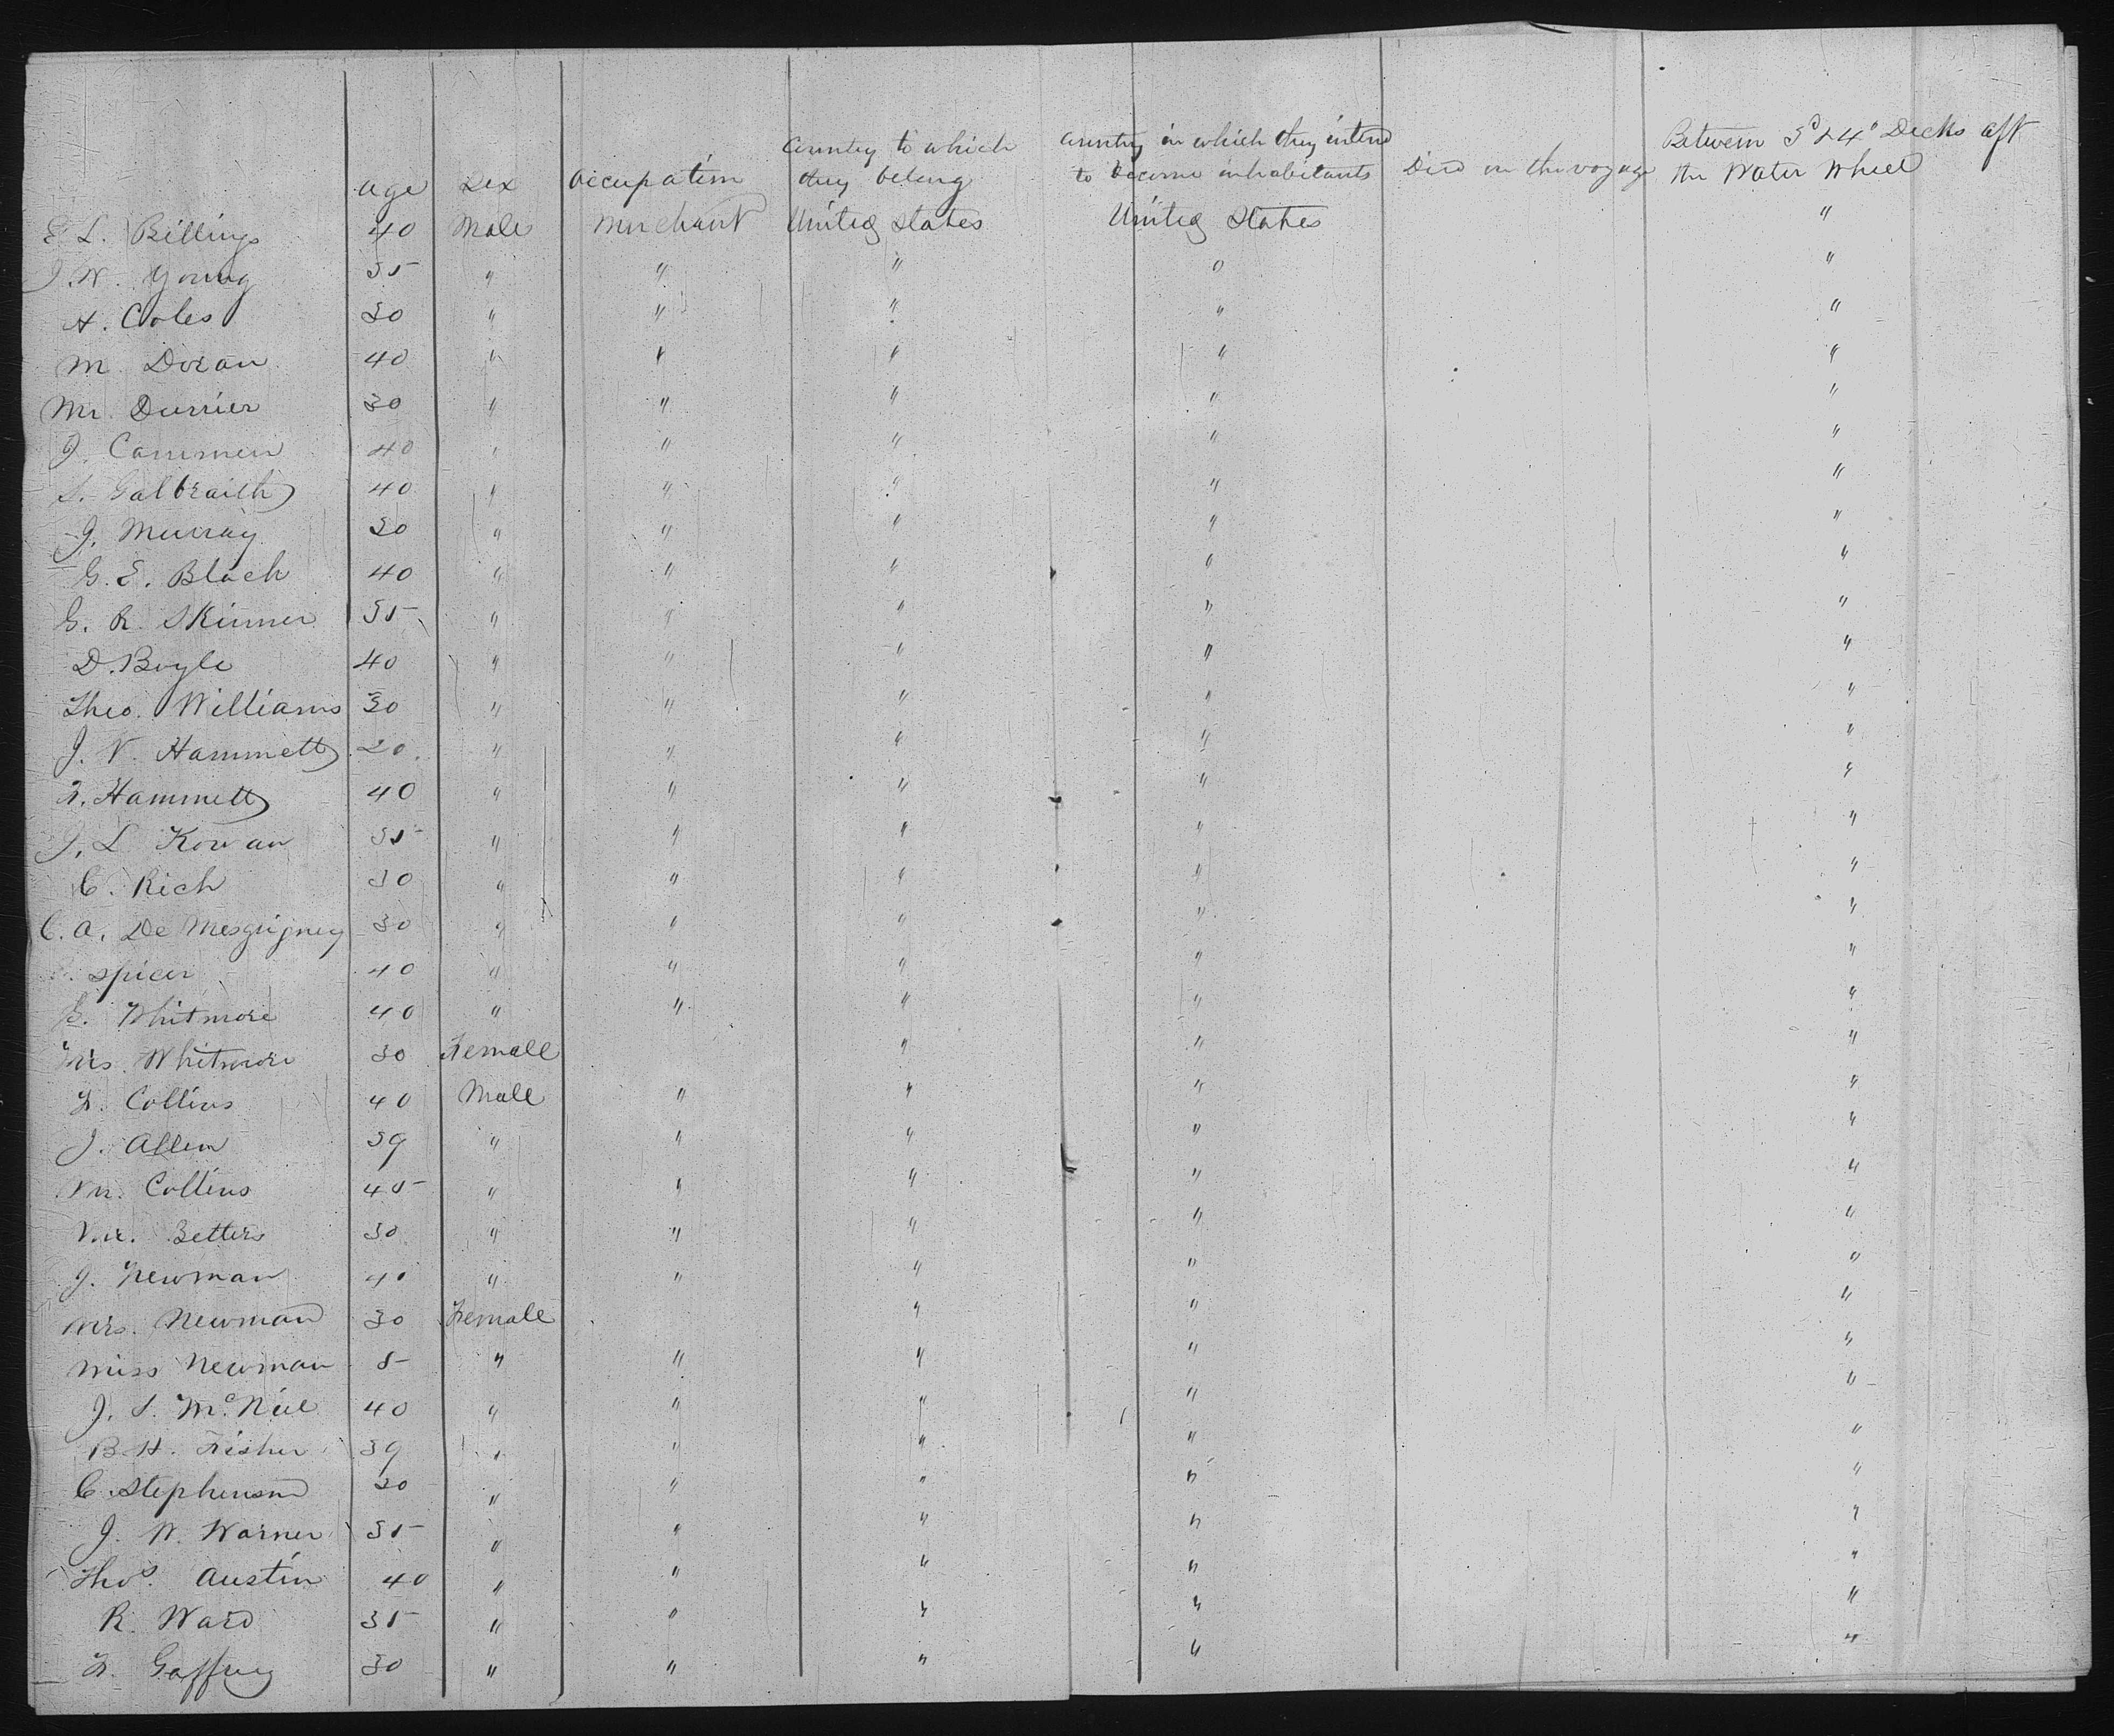 age Sex Occupation Country to which they belong Country in which they intend to become inhabitants Died on the voyage Between 3d & 4th Decks aft the Water Wheel
E. L. Billings 40 Male Merchant United States United States "
J. W. Young 35 " " " " "
A. Coles 30 " " " " "
M. Doran 40 " " " " "
Mr. Durrier 30 " " " " "
J. Cammen 40 " " " " "
S. Galbraith 40 " " " " "
J. Murray 30 " " " " "
G. E. Black 40 " " " " "
G. R. Skinner 35 " " " " "
D. Boyle 40 " " " " "
Theo. Williams 30 " " " " "
J. V. Hammett 20 " " " " "
F. Hammett 40 " " " " "
J. L. Kowan 35 " " " " "
C. Rich 30 " " " " "
C. A. De Mesguigney 30 " " " " "
Spicer 40 " " " " "
E. Whitmore 40 " " " " "
Mrs. Whitmore 30 Female " " "
F. Collins 40 Male " " " "
J. Allen 39 " " " " "
Collins 45 " " " " "
Zetters 30 " " " " "
J. Newman 40 " " " " "
Mrs. Newman 30 Female " " "
Miss Newman 8 " " " " "
J. S. McNeil 40 " " " " "
B. H. Fisher 39 " " " " "
C. Stephenson 30 " " " " "
J. W. Warner 35 " " " " "
Thos. Austin 40 " " " " "
R. Ward 35 " " " " "
F. Gaffney 30 " " " " "